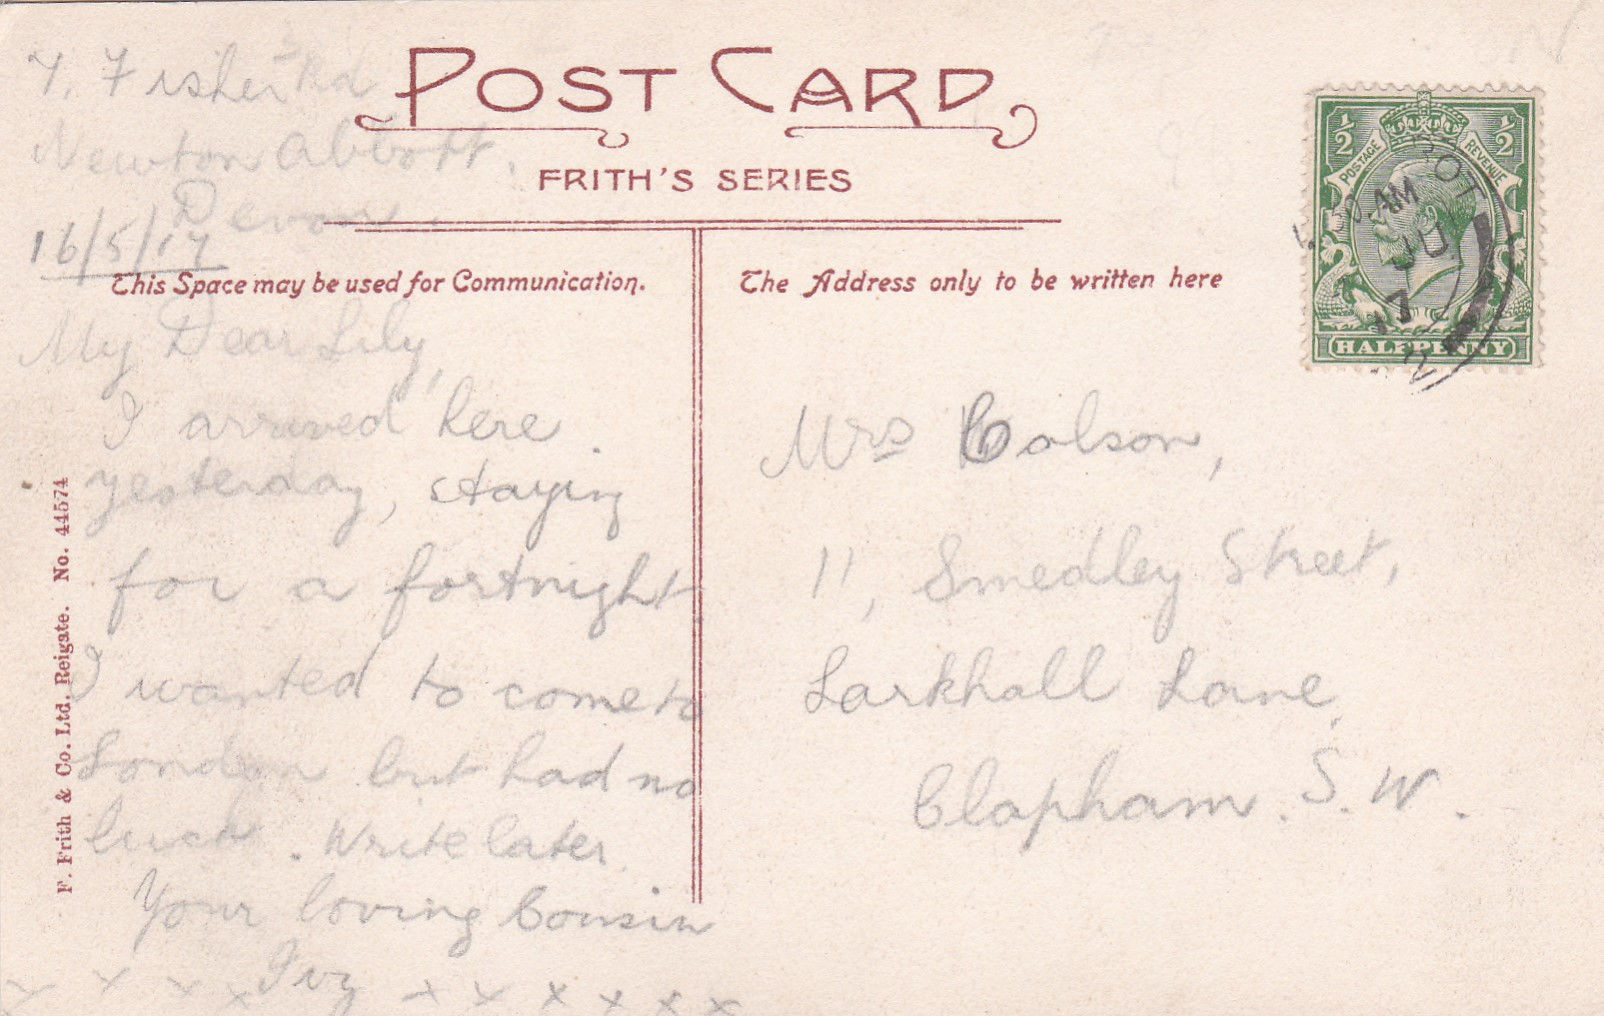 7. Fisher Rd
Newton Abbott.
Devon.
16/5/17
POST CARD
FRITH'S SERIES
This Space may be used for Communication.
The Address only to be written here
My Dear Lily,
I arrived here
yesterday, staying
for a fortnight.
I wanted to come to
London but had no
luck. Write later.
Your loving Cousin
Ivy
x x x x x x x x x x
F. Frith & Co. Ltd. Reigate. No. 44574
Mrs Colson,
11, Smedley Street,
Larkhall Lane,
Clapham. S.W.
½ ½
POSTAGE REVENUE
HALFPENNY
30 AM
JU
17